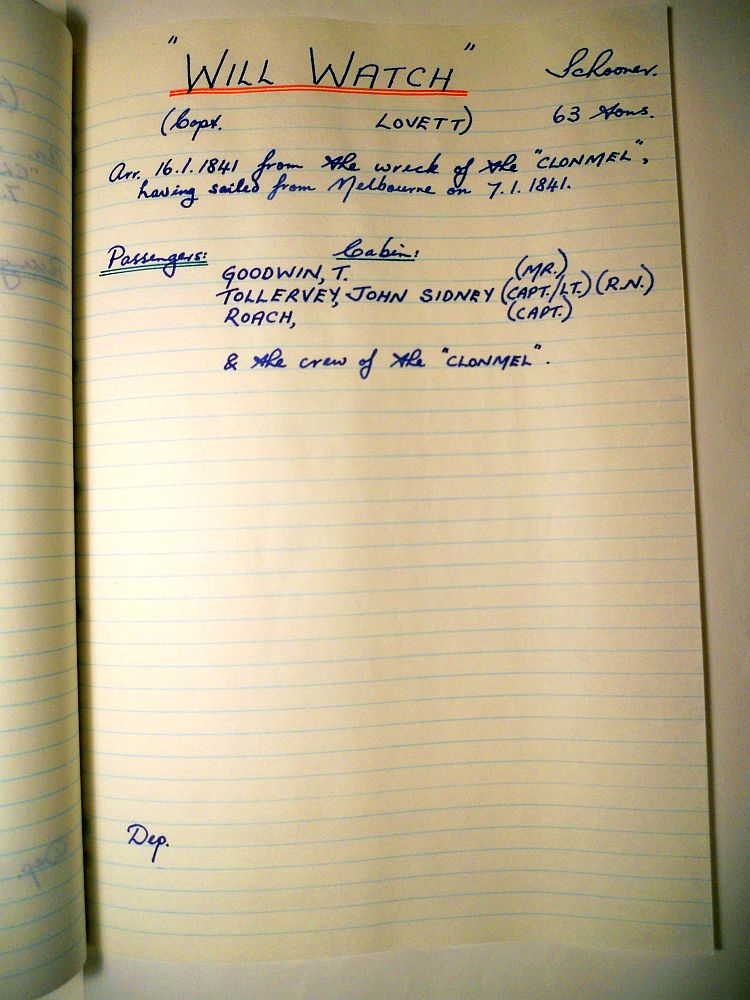 "WILL WATCH" Schooner.
(Capt. LOVETT) 63 tons.
Arr. 16.1.1841 from the wreck of the "CLONMEL",
having sailed from Melbourne on 7.1.1841.
Passengers: Cabin:
GOODWIN, T. (MR.)
TOLLERVEY, JOHN SIDNEY (CAPT./LT.) (R.N.)
ROACH, (CAPT.)
& the crew of the "CLONMEL".
Dep.